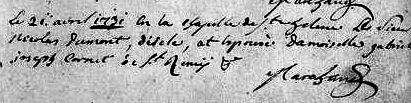 le 21 avril 1731 En la chapelle de Ste helene Le Sieur
nicolas Dumont, disele, at Epousé damoiselle gabriel
joseph Cornet de St Remis &